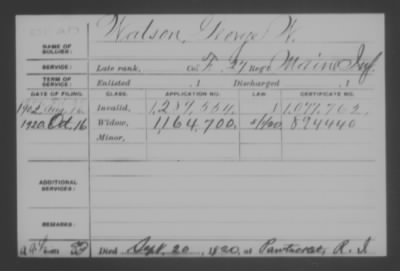 NAME OF SOLDIER: Watson, George W.
SERVICE: Late rank, Co. F, 27 Reg't Maine Inf.
TERM OF SERVICE: Enlisted , 1 Discharged , 1
DATE OF FILING. CLASS. APPLICATION NO. LAW. CERTIFICATE NO.
Aug. 16 Invalid, 1,257,554. 1,077,762
1920 Oct. 16 Widow, 1,164,700. 894440
Minor,
ADDITIONAL SERVICES:
REMARKS:
Died Sept. 20, 1920, at Pawtucket, R. I.